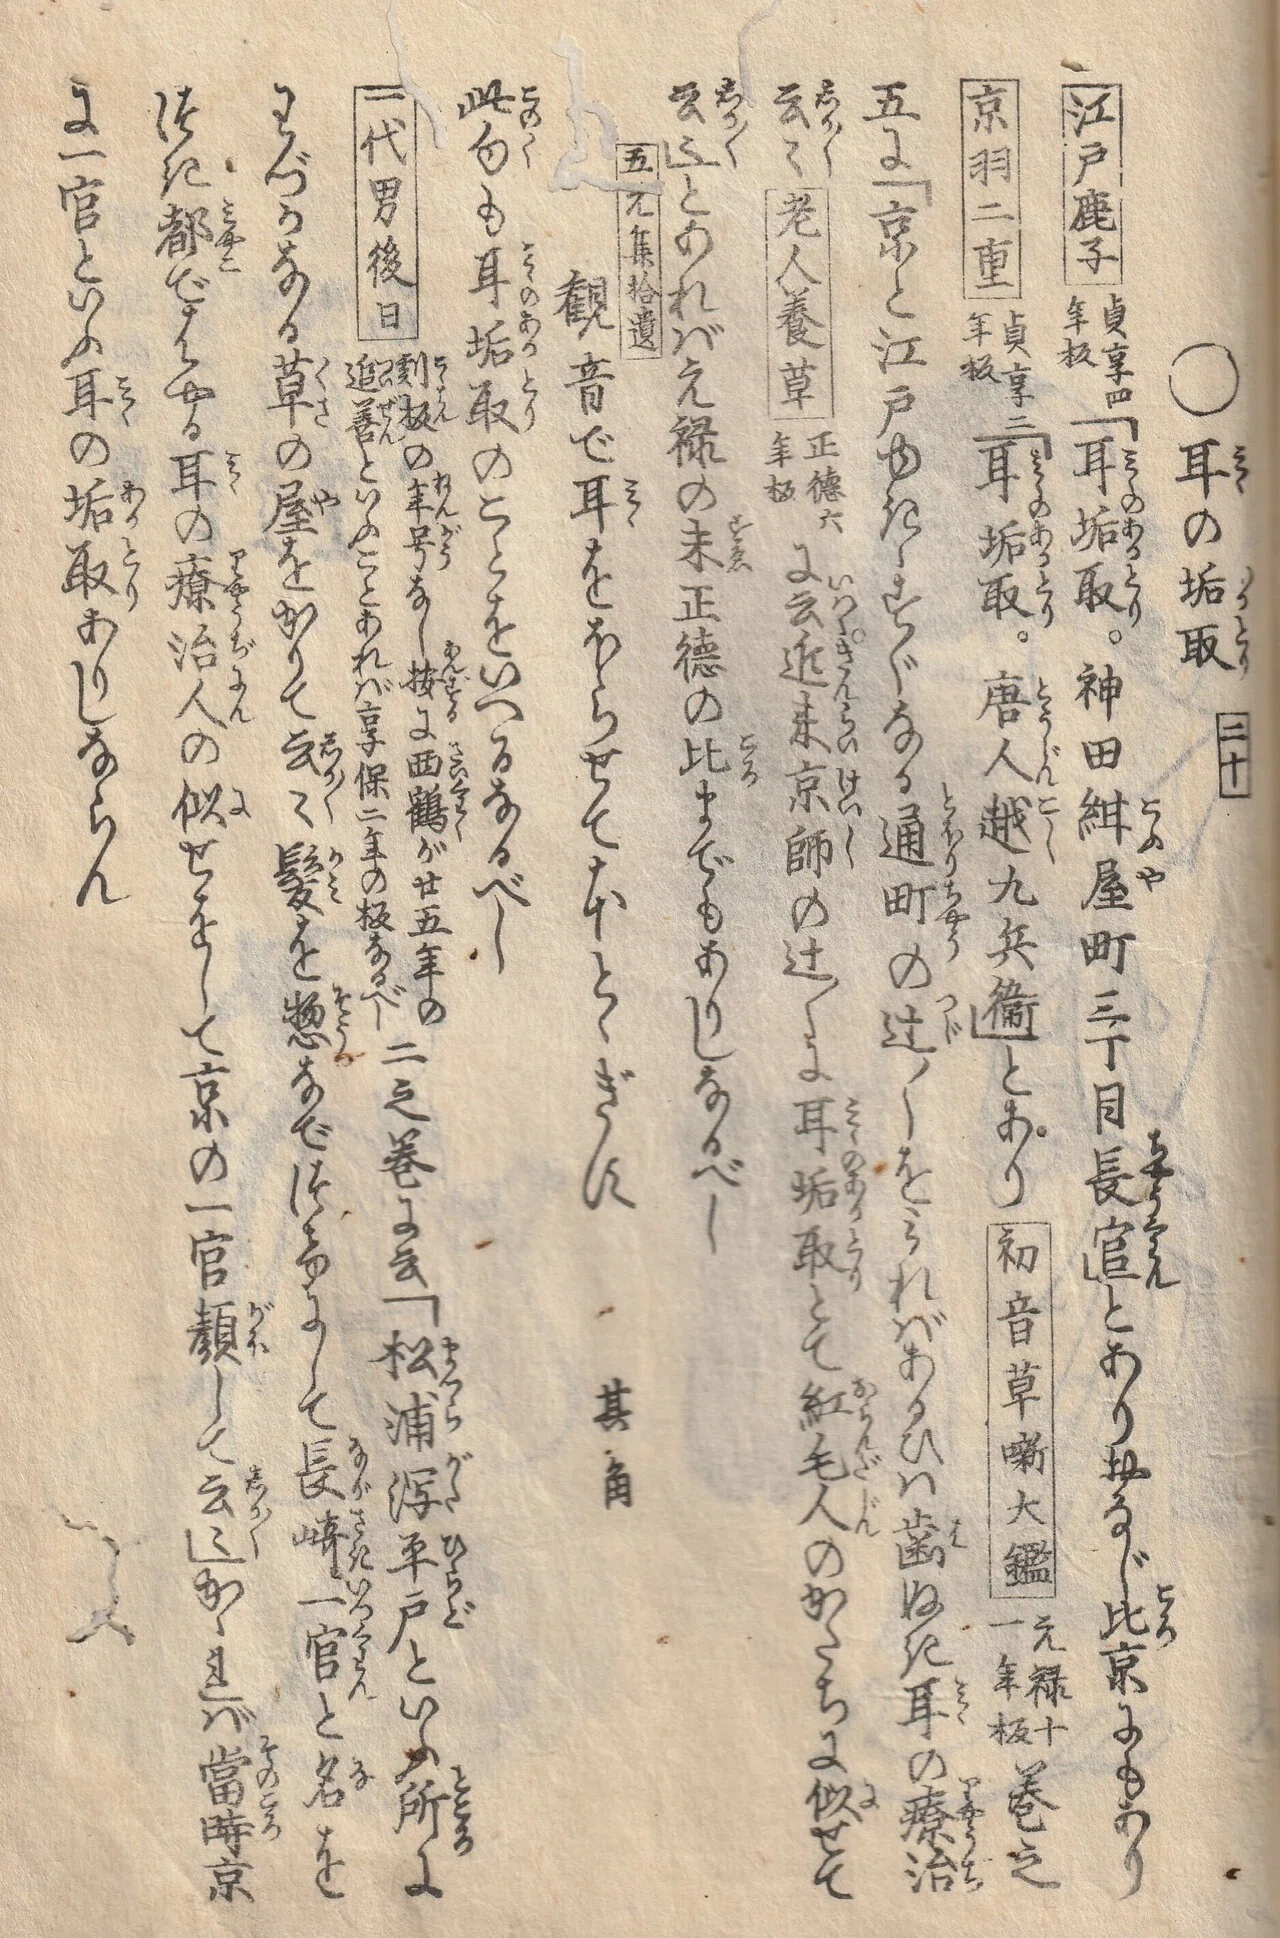 ○耳の垢取
二十
江戸鹿子 貞享四年板「耳垢取。神田紺屋町三丁目長官」とありおなじ比京にもあり
京羽二重 貞享二年板「耳垢取。唐人越九兵衞」とあり 初音草噺大鑑 元禄十一年板 巻之
五に「京と江戸ゆきゝすぐなる通町の辻〳〵をみればあるひハ歯ぬき耳の療治
云々 老人養草 正德六年板 に云近来京師の辻〳〵に耳垢取とて紅毛人のかたちに似せて
云々」とあれバ元禄の末正德の比までもありしなるべし
五元集拾遺
観音で耳をほらせてホトヽぎす 其角
此句も耳垢取のことをいへるなるべし
一代男後日 刻板の年号なし按に西鶴が廿五年の追善といふことあれバ享保二年の板なるべし 二之巻に云「松浦泻平戸といふ所に
わづかなる草の屋をかりて云々髪を惣なでつけにして長崎一官と名を
つき都ではやる耳の療治人の似せをして京の一官顔して云々」かゝれバ當時京
に一官といふ耳の垢取ありしならん